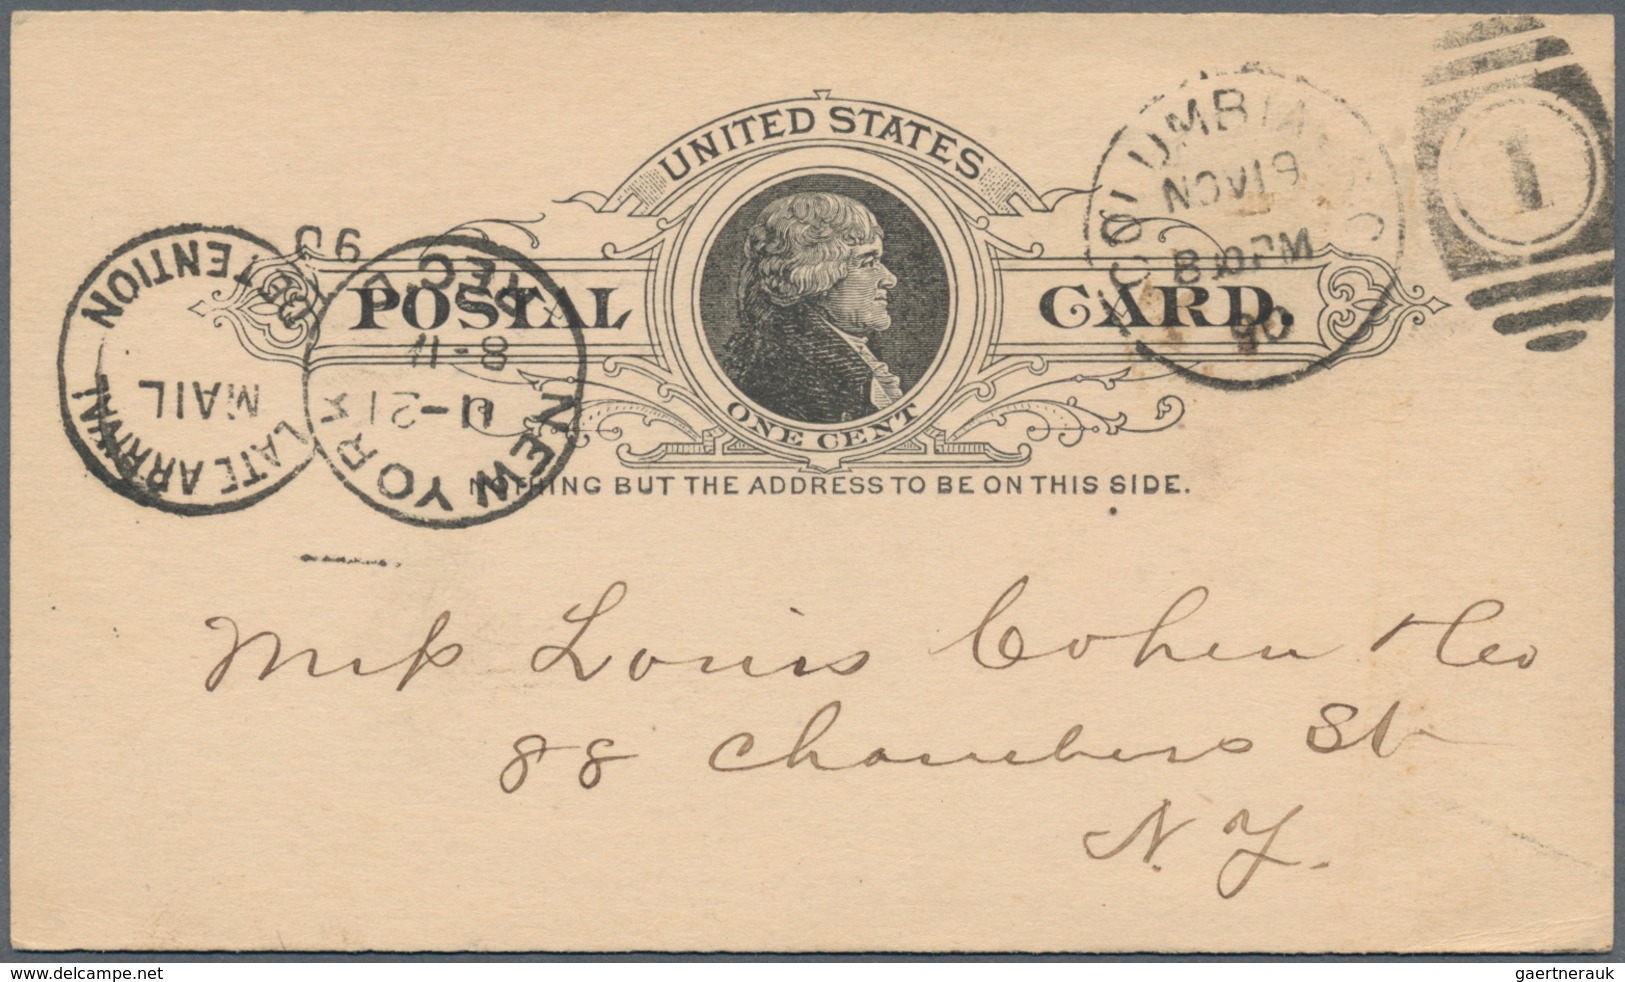 UNITED STATES
POSTAL CARD.
ONE CENT
NOTHING BUT THE ADDRESS TO BE ON THIS SIDE.
COLUMBIA S.C.
NOV 19
90
1
NEW YORK
REC'D
8-11
11-21
90
LATE ARRIVAL
MAIL
DETENTION
Louis Cohen & Co
88 Chambers St
N. Y.
www.delcampe.net
gaertnerauk